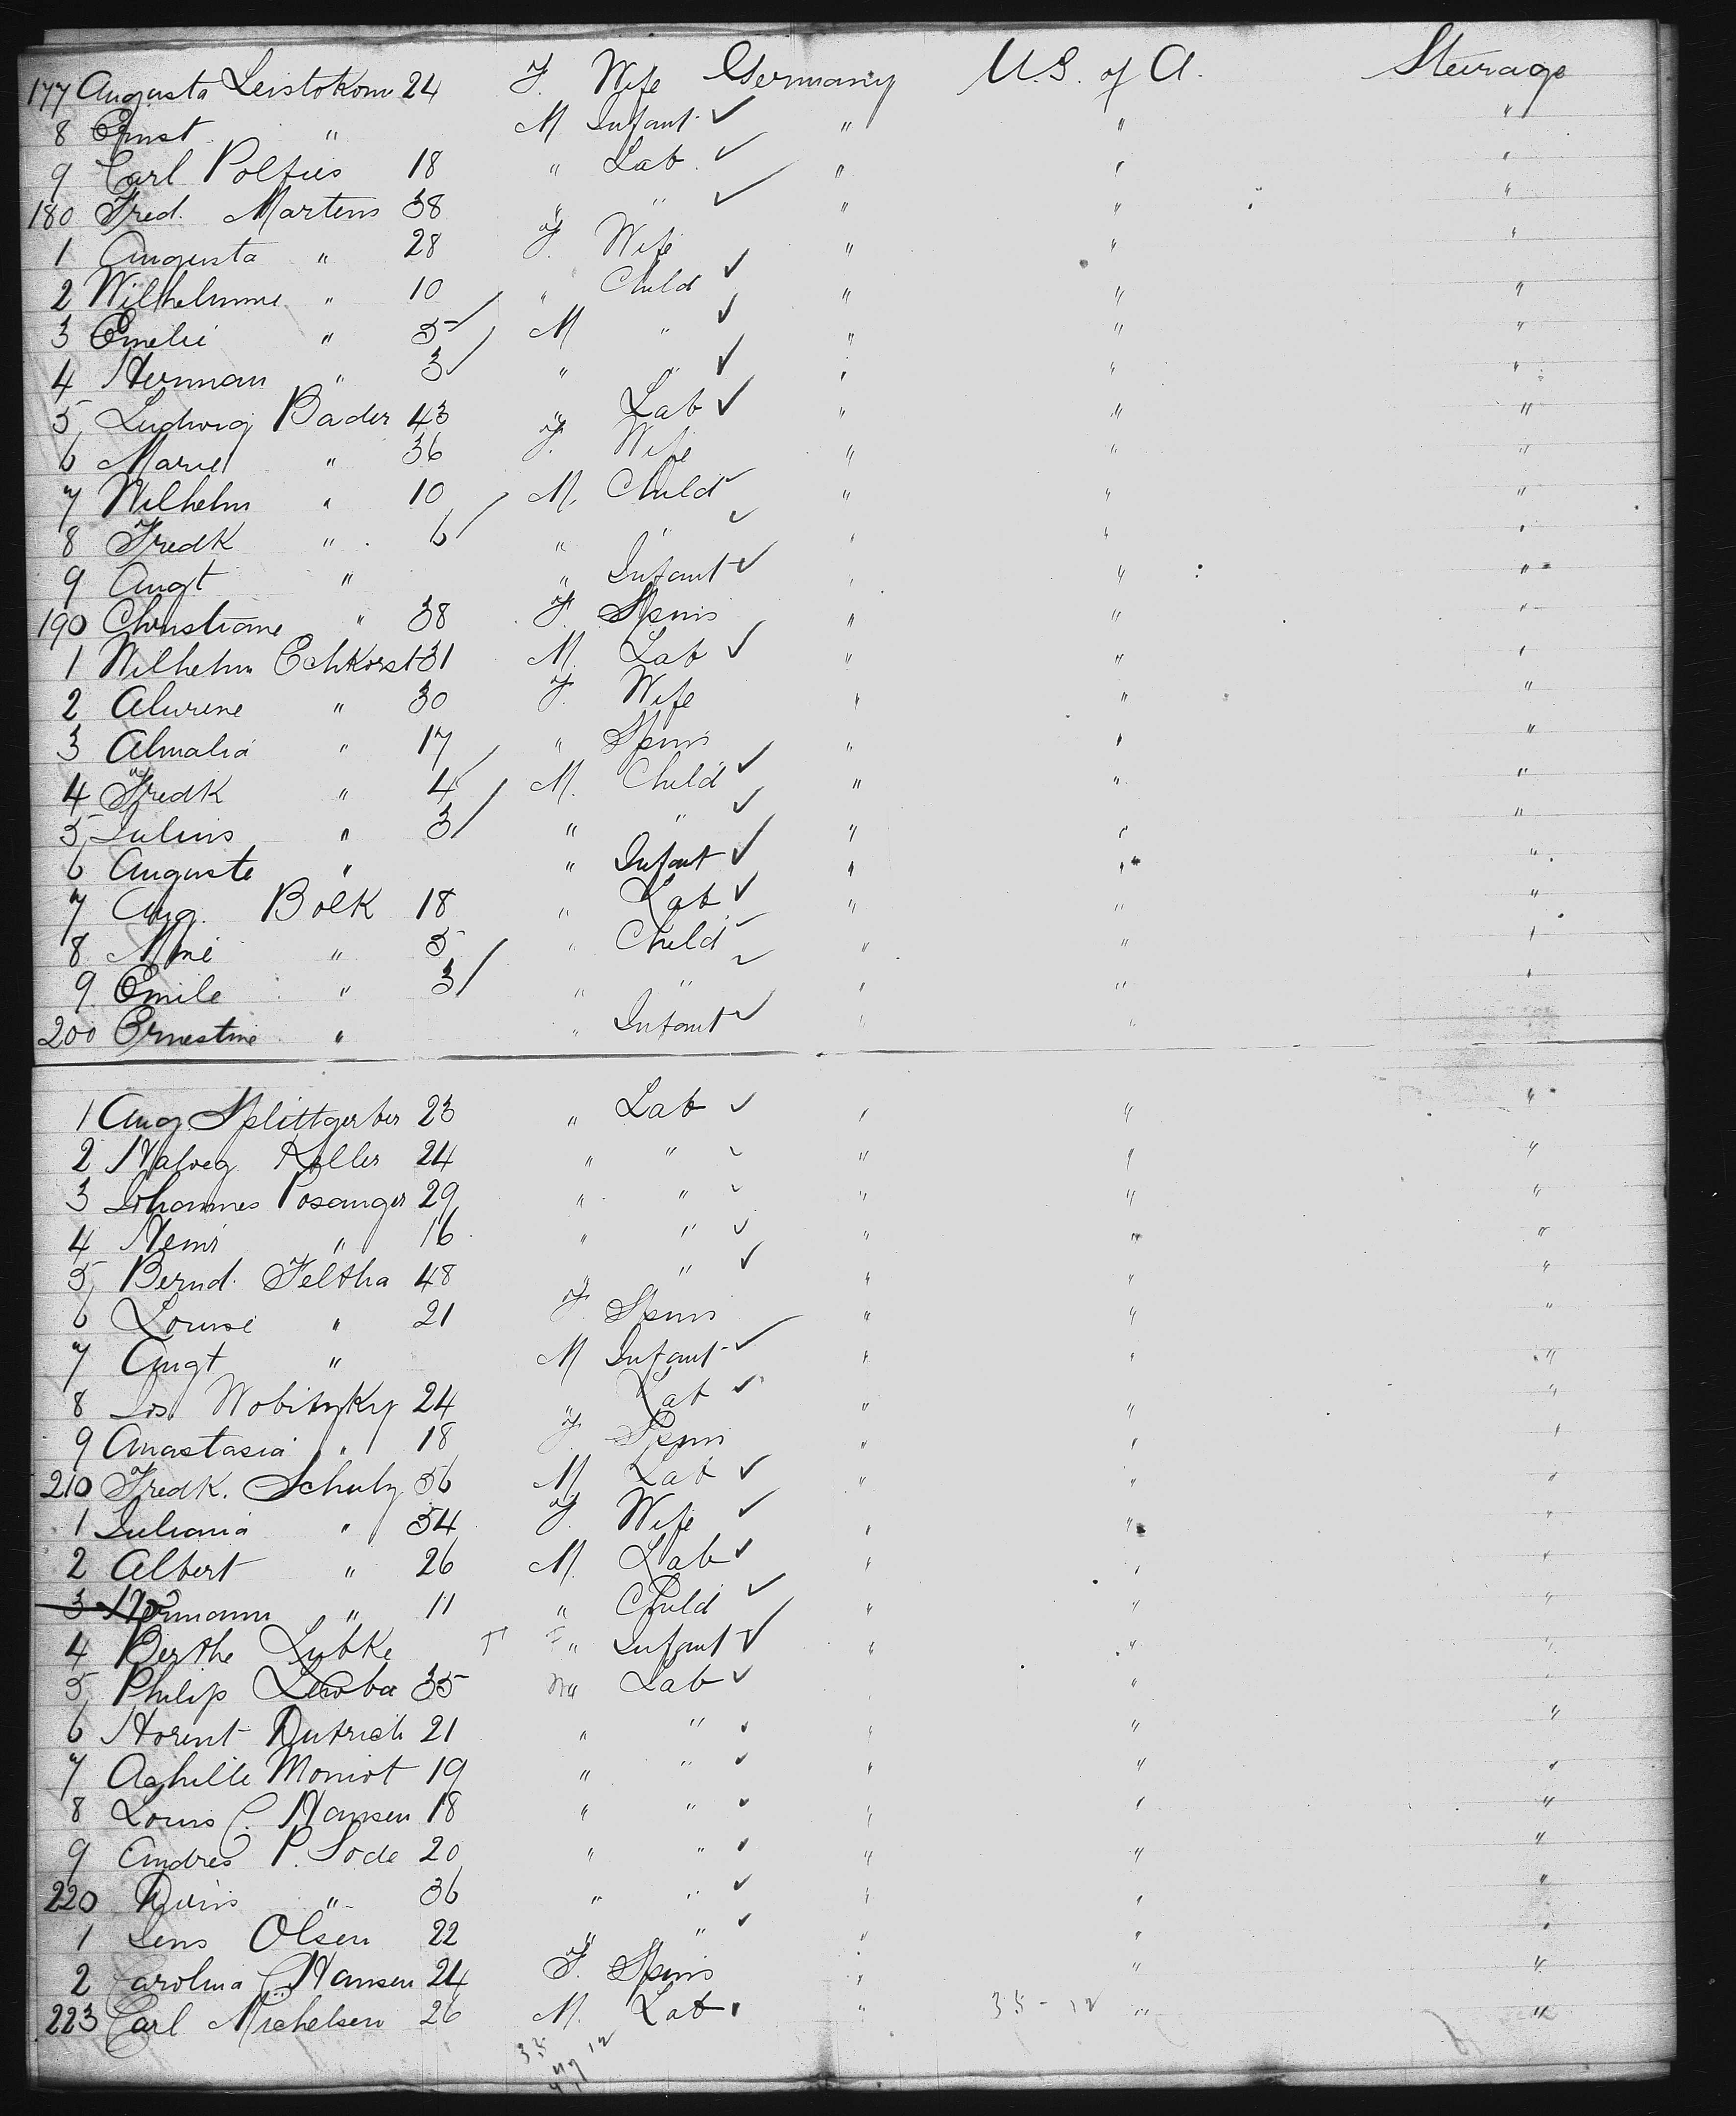 177 Augusta Leistokow 24 F. Wife Germany U.S. of A. Steerage
8 Ernst " M Infant ✓ " " "
9 Carl Polfus 18 " Lab. ✓ " " "
180 Fred. Martens 38 " " ✓ " " "
1 Augusta " 28 F. Wife " " "
2 Wilhelmine " 10 " Child ✓ " " "
3 Emelie " 5 M " ✓ " " "
4 Herman " 3 " " ✓ " " "
5 Ludwig Bader 43 " Lab ✓ " " "
6 Marie " 36 F. Wife " " "
7 Wilhelm " 10 M. Child ✓ " " "
8 Fredk " 6 " " ✓ " " "
9 Augt " " Infant ✓ " " "
190 Christiane " 38 F. Spins " " "
1 Wilhelm Echkorst 31 M. Lab ✓ " " "
2 Alwine " 30 F. Wife " " "
3 Almalia " 17 " Spins " " "
4 Fredk " 4 M. Child ✓ " " "
5 Julius " 3 " " ✓ " " "
6 Auguste " " Infant ✓ " " "
7 Aug. Bolk 18 " Lab ✓ " " "
8 Mine " 5 " Child ✓ " " "
9 Emile " 3 " " ✓ " " "
200 Ernestine " " Infant ✓ " " "
1 Aug Splittgerber 23 " Lab ✓ " " "
2 Koller 24 " " ✓ " " "
3 Johannes Posanger 29 " " ✓ " " "
4 " 16 " " ✓ " " "
5 Bernd. Feltha 48 " " ✓ " " "
6 Louise " 21 F. Spins " " "
7 Augt " M Infant ✓ " " "
8 Jos. 24 " Lab ✓ " " "
9 Anastasia " 18 F. Spins " " "
210 Fredk. Schulz 56 M Lab ✓ " " "
1 Juliania " 54 F. Wife ✓ " " "
2 Albert " 26 M. Lab ✓ " " "
3 Hermann " 11 " Child ✓ " " "
4 Berthe Lubke " Infant ✓ " " "
5 Philip 35 M Lab ✓ " " "
6 Florent Dutrich 21 " " ✓ " " "
7 Achille Moniot 19 " " ✓ " " "
8 Louis C. Hansen 18 " " ✓ " " "
9 Andres P. Sode 20 " " ✓ " " "
220 " 36 " " ✓ " " "
1 Jens Olsen 22 " " ✓ " " "
2 Carolina C. Hansen 24 F. Spins " " "
223 Carl Michelsen 26 M. Lab " 35-12 " "
35 12
47